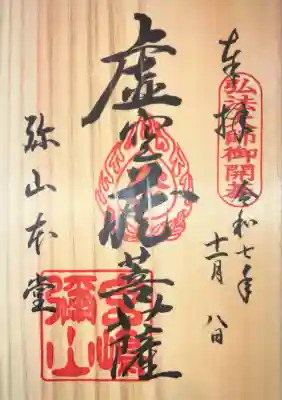 奉拝
弘法大師御開基
令和七年
十一月八日
虚空蔵菩薩
弥山本堂
宮島
彌山